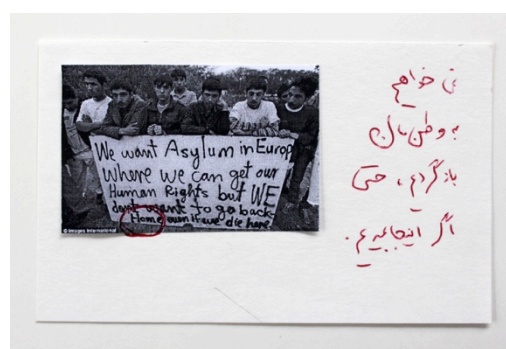 We want Asylum in Europ
where we can get our
Human Rights but WE
dont want to go back
Home even if we die here.
© Images International
نمی خواهیم
به وطن مان
بازگردیم، حتی
اگر اینجا بمیریم.